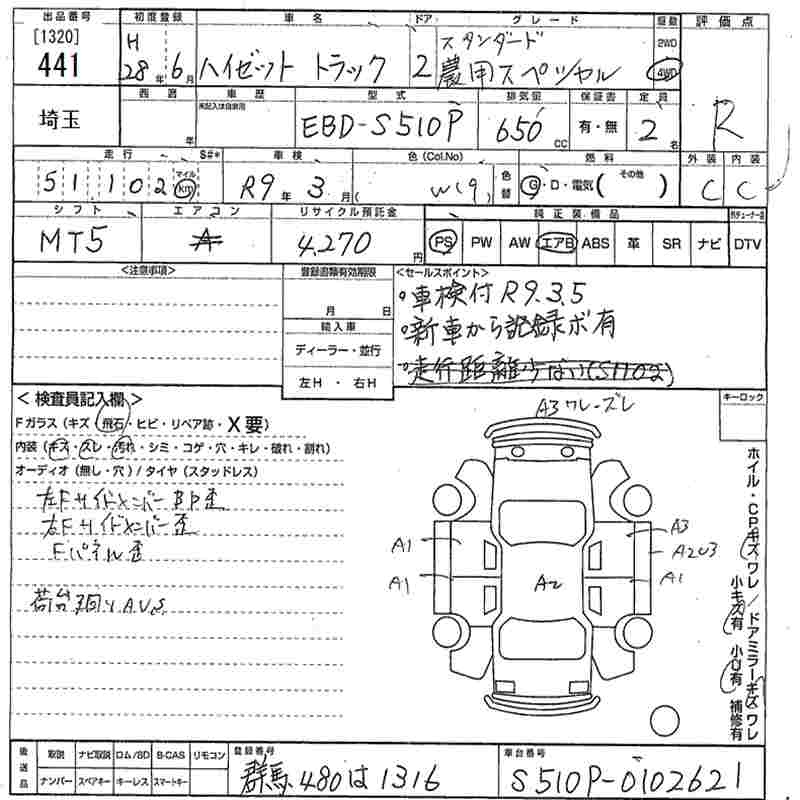 出品番号 初度登録 車名 ドア グレード 駆動 評価点
[1320] H スタンダード 2WD
441 28年 6月 ハイゼット トラック 2 農用スペシャル 4WD R
埼玉 西暦 年 車歴 未記入は自家用 型式 EBD-S510P 排気量 650 cc 保証書 有・無 定員 2名
走行 S#* 車検 色(Col.No) 色替 燃料 外装 内装
51102 マイル km R9年 3月 ( W(9) G・D・電気( その他 ) C C
シフト エアコン リサイクル預託金 純正装備品
MT5 A 4,270円 PS PW AW エアB ABS 革 SR ナビ DTV
<注意事項> 登録書類有効期限 <セールスポイント>
月 日 ・車検付R9.3.5
輸入車 ・新車から記録ボ有
ディーラー・並行 ・走行距離少ない(51102)
左H・右H
<検査員記入欄> キーロック
Fガラス(キズ・飛石・ヒビ・リペア跡・X要)
A3ワレ・ズレ
内装(キズ・スレ・汚れ・シミ・コゲ・穴・キレ・破れ・割れ)
オーディオ(無し・穴)/タイヤ(スタッドレス)
左Fサイドメンバー BP歪
右Fサイドメンバー歪
Fパネル歪
荷台廻りA.U.S.
A1 A3
A2U3
A1 A2 A1
ホイル・CPキズワレ/ドアミラーキズワレ
小キズ有 小U有 補修有
後送品 取説 ナビ取説 ロム/SD B-CAS リモコン 登録番号 車台番号
ナンバー スペアキー キーレス スマートキー 群馬480は1316 S510P-0102621